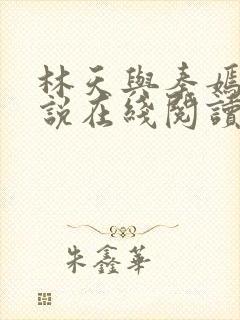 林天與秦嫣
說在綫閱讀
朱鑫華